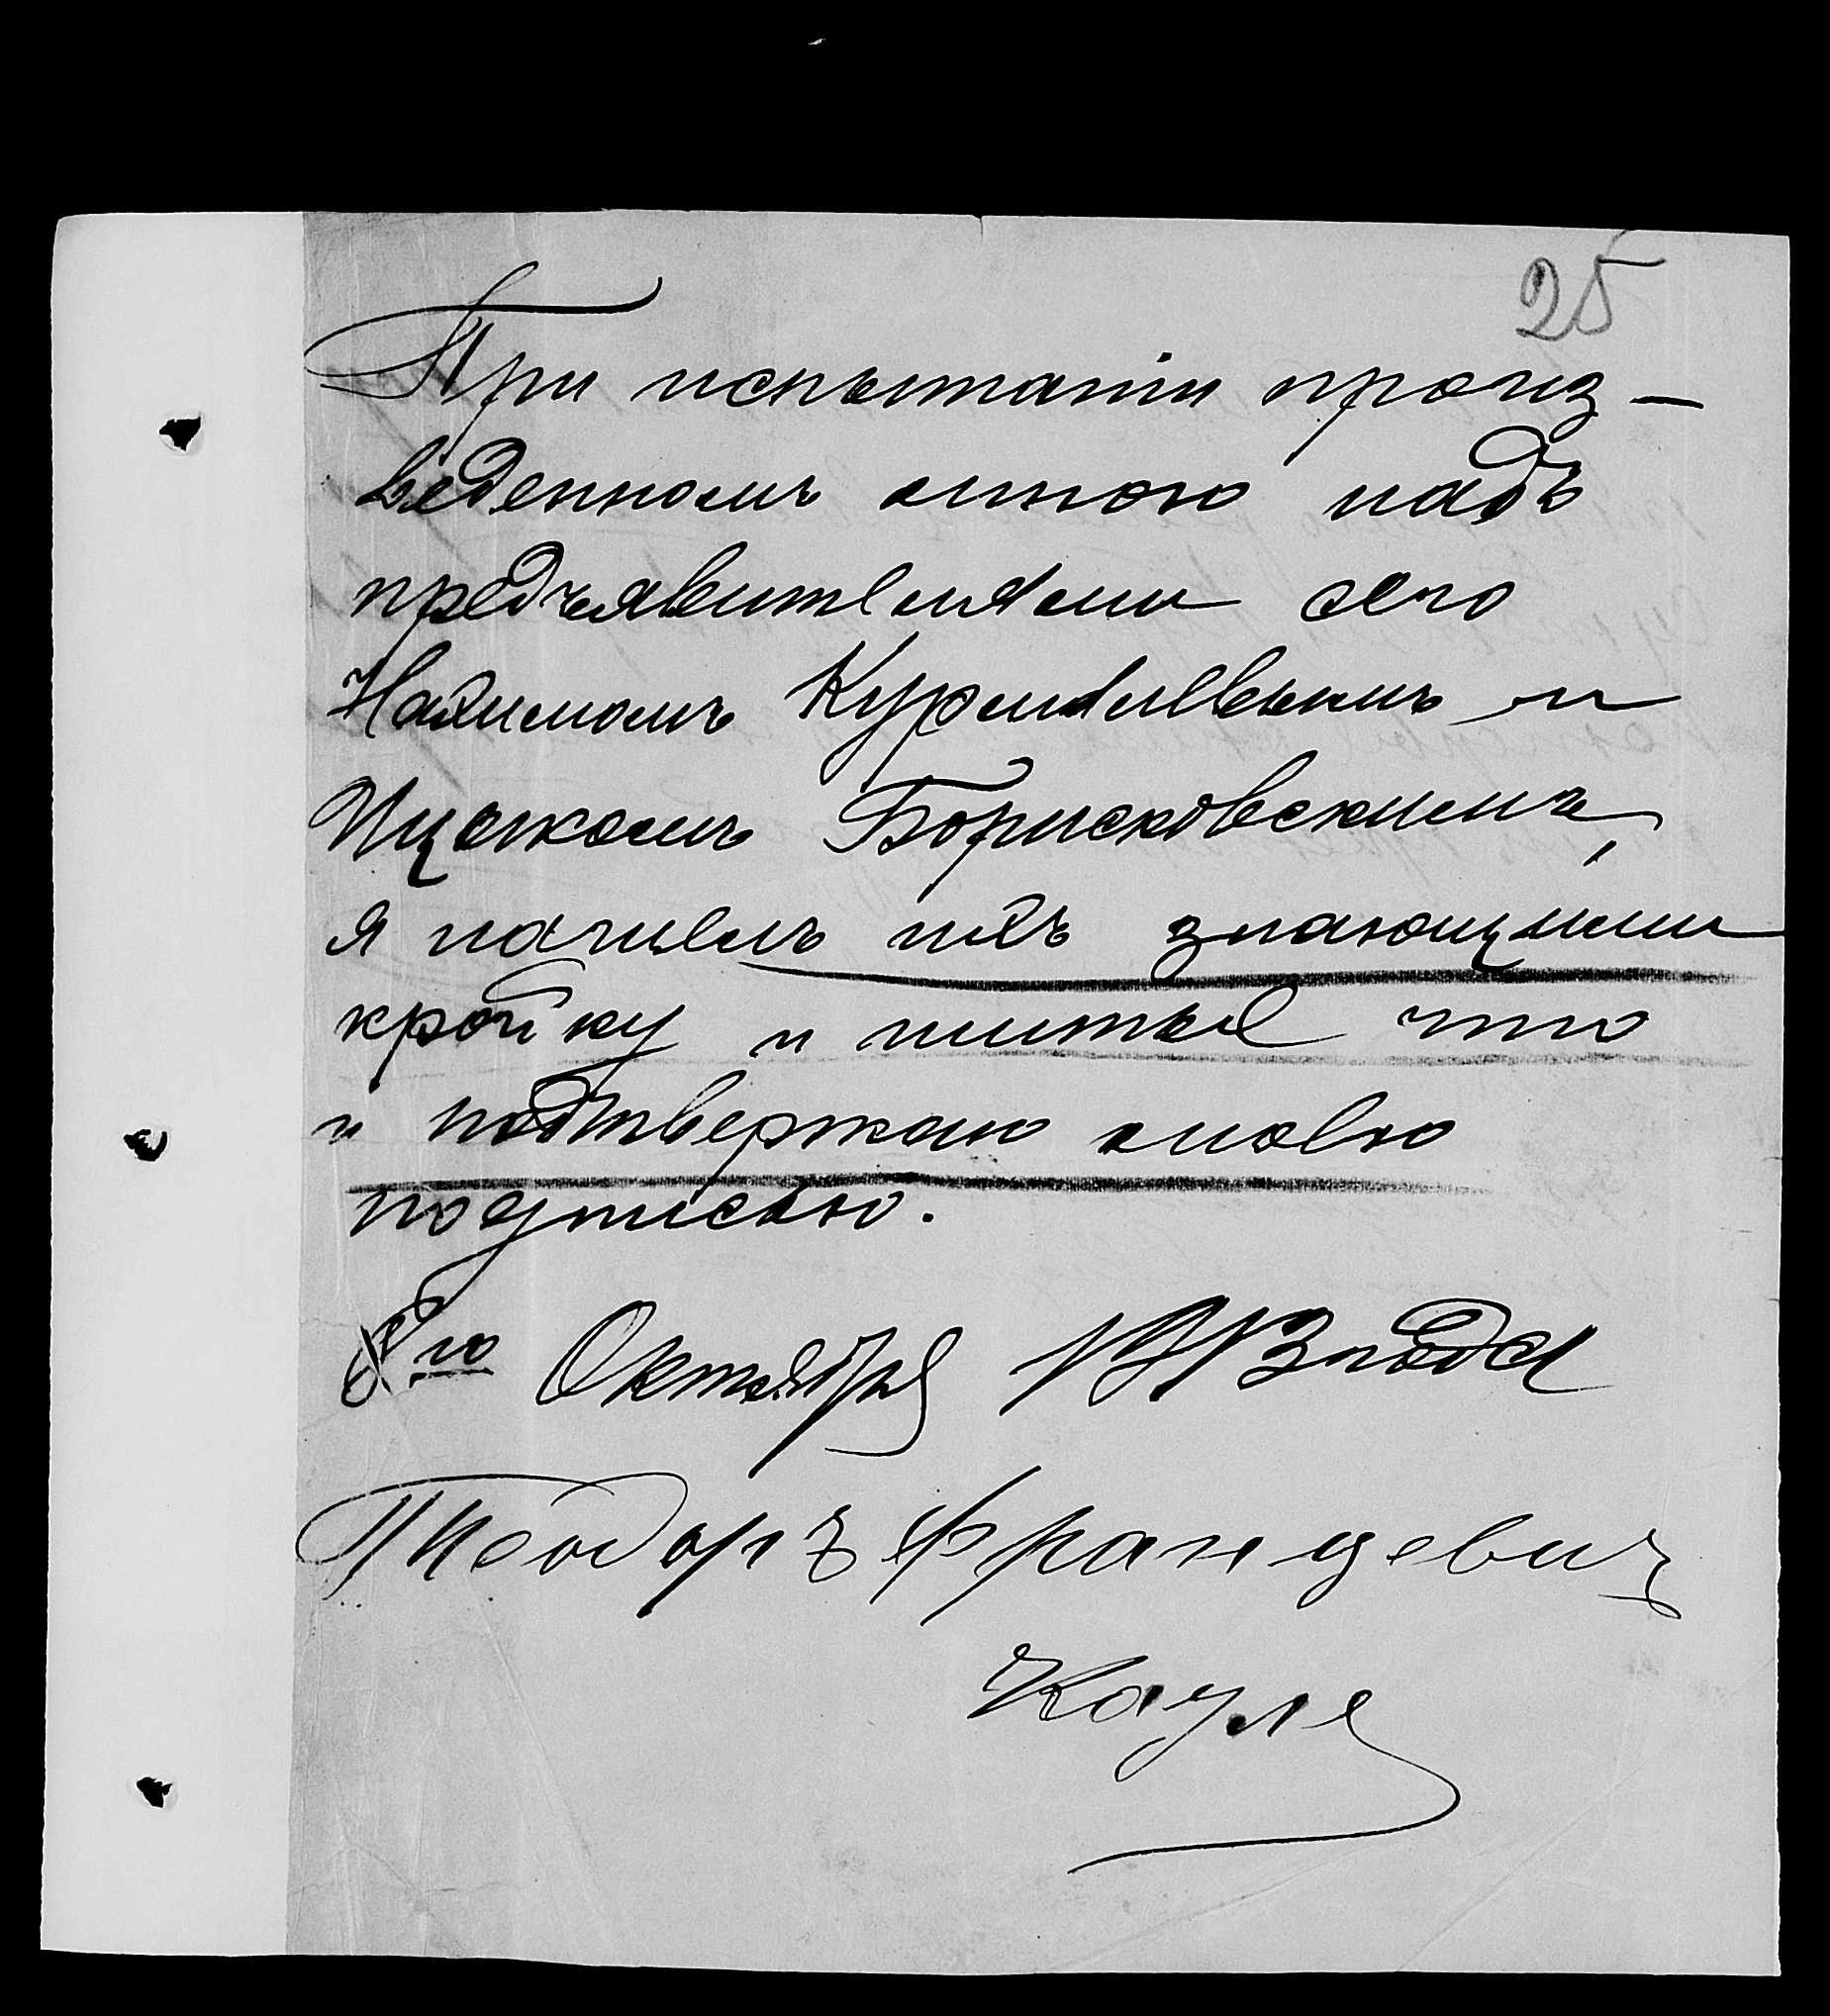 25
При испытаніи произ-
веденномъ мною надъ
предъявителями сего
и
Ицкомъ Борисковскимъ,
я нашелъ ихъ знающими
кройку и шитье что
и подтвержаю моею
подписью.
8го Октября
Теодоръ Францевич
Кауля